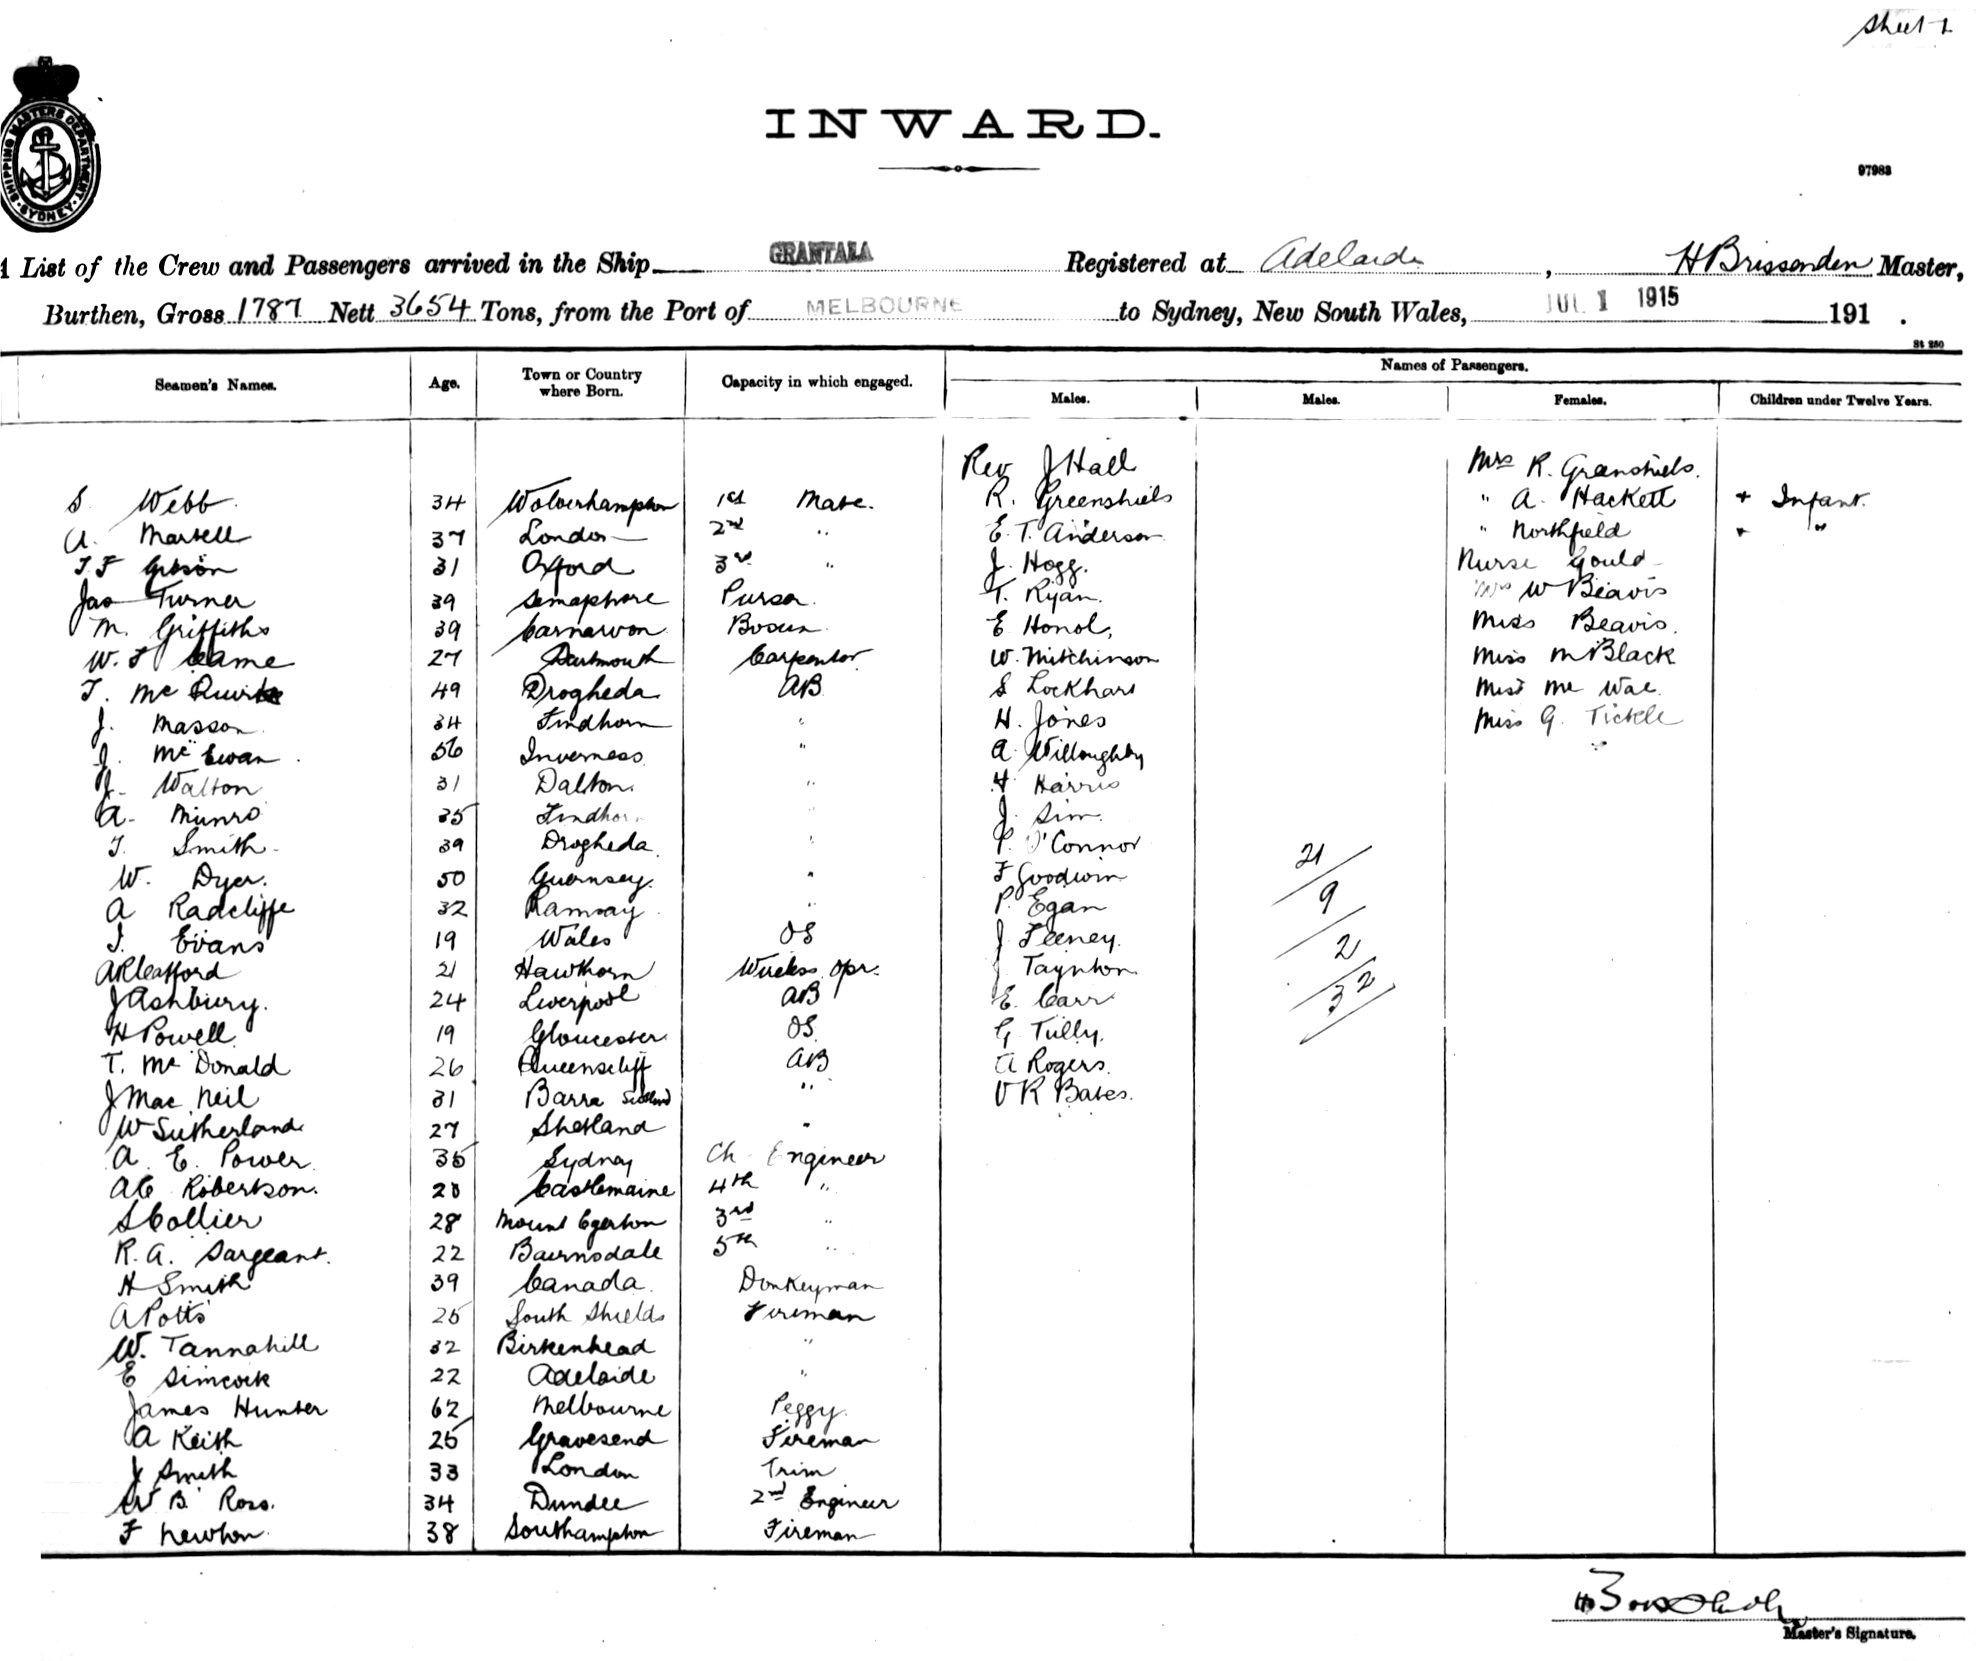 Sheet 1
SHIPPING MASTERS DEPARTMENT
SYDNEY
INWARD.
97983
A List of the Crew and Passengers arrived in the Ship GRANTALA Registered at Adelaide, H Brissenden Master,
Burthen, Gross 1787 Nett 3654 Tons, from the Port of MELBOURNE to Sydney, New South Wales, JUL 1 1915 191 .
St 250
Seamen's Names. Age. Town or Country where Born. Capacity in which engaged. Names of Passengers.
Males. Males. Females. Children under Twelve Years.
Rev J Hall Mrs R. Greenshiels.
S Webb 34 Wolverhampton 1st Mate. R. Greenshiels " A. Hackett + Infant.
A. Martell 37 London 2nd " E. T. Anderson " Northfield + "
T. F Gibson 31 Oxford 3rd " J. Hogg. Nurse Gould
Jas Turner 39 Semaphore Purser. T. Ryan. Mrs W Beavis
M. Griffiths 39 Carnarvon Bosun E Honol, Miss Beavis.
W. F Came 27 Dartmouth Carpenter W. Mitchinson Miss M Black
T. Mc Quirke 49 Drogheda AB S Lockhart Miss Mc Wae.
J. Masson 34 Findhorn " H. Jones Miss G. Tickle
J. McEwan 56 Inverness " A. Willoughby
J. Walton 31 Dalton " H Harris
A. Munro 35 Findhorn " J. Sim
T. Smith 39 Drogheda " P. O'Connor 21
W. Dyer. 50 Guernsey. " F Goodwin
A Radcliffe 32 Ramsay " P. Egan 9
J. Evans 19 Wales OS J Feeney. 2
A R Leafford 21 Hawthorn Wireless Opr. J Taynton
J Ashbury. 24 Liverpool AB E. Carr 32
H Powell 19 Gloucester OS. G Tully.
T. McDonald 26 Queenscliff AB A Rogers.
J MacNeil 31 Barra Scotland " V R Bates.
W Sutherland 27 Shetland "
A. E. Power 35 Sydney Ch Engineer
A C Robertson. 28 Castlemaine 4th "
S Collier 28 Mount Egerton 3rd "
R. A. Sargeant. 22 Bairnsdale 5th "
H Smith 39 Canada. Donkeyman
A Potts 25 South Shields Fireman
W. Tannahill 32 Birkenhead "
E Simcock 22 Adelaide "
James Hunter 62 Melbourne Peggy.
A Keith 25 Gravesend Fireman
J Smith 33 London Trim
W B Ross. 34 Dundee 2nd Engineer
F Newton 38 Southampton Fireman
Master's Signature.